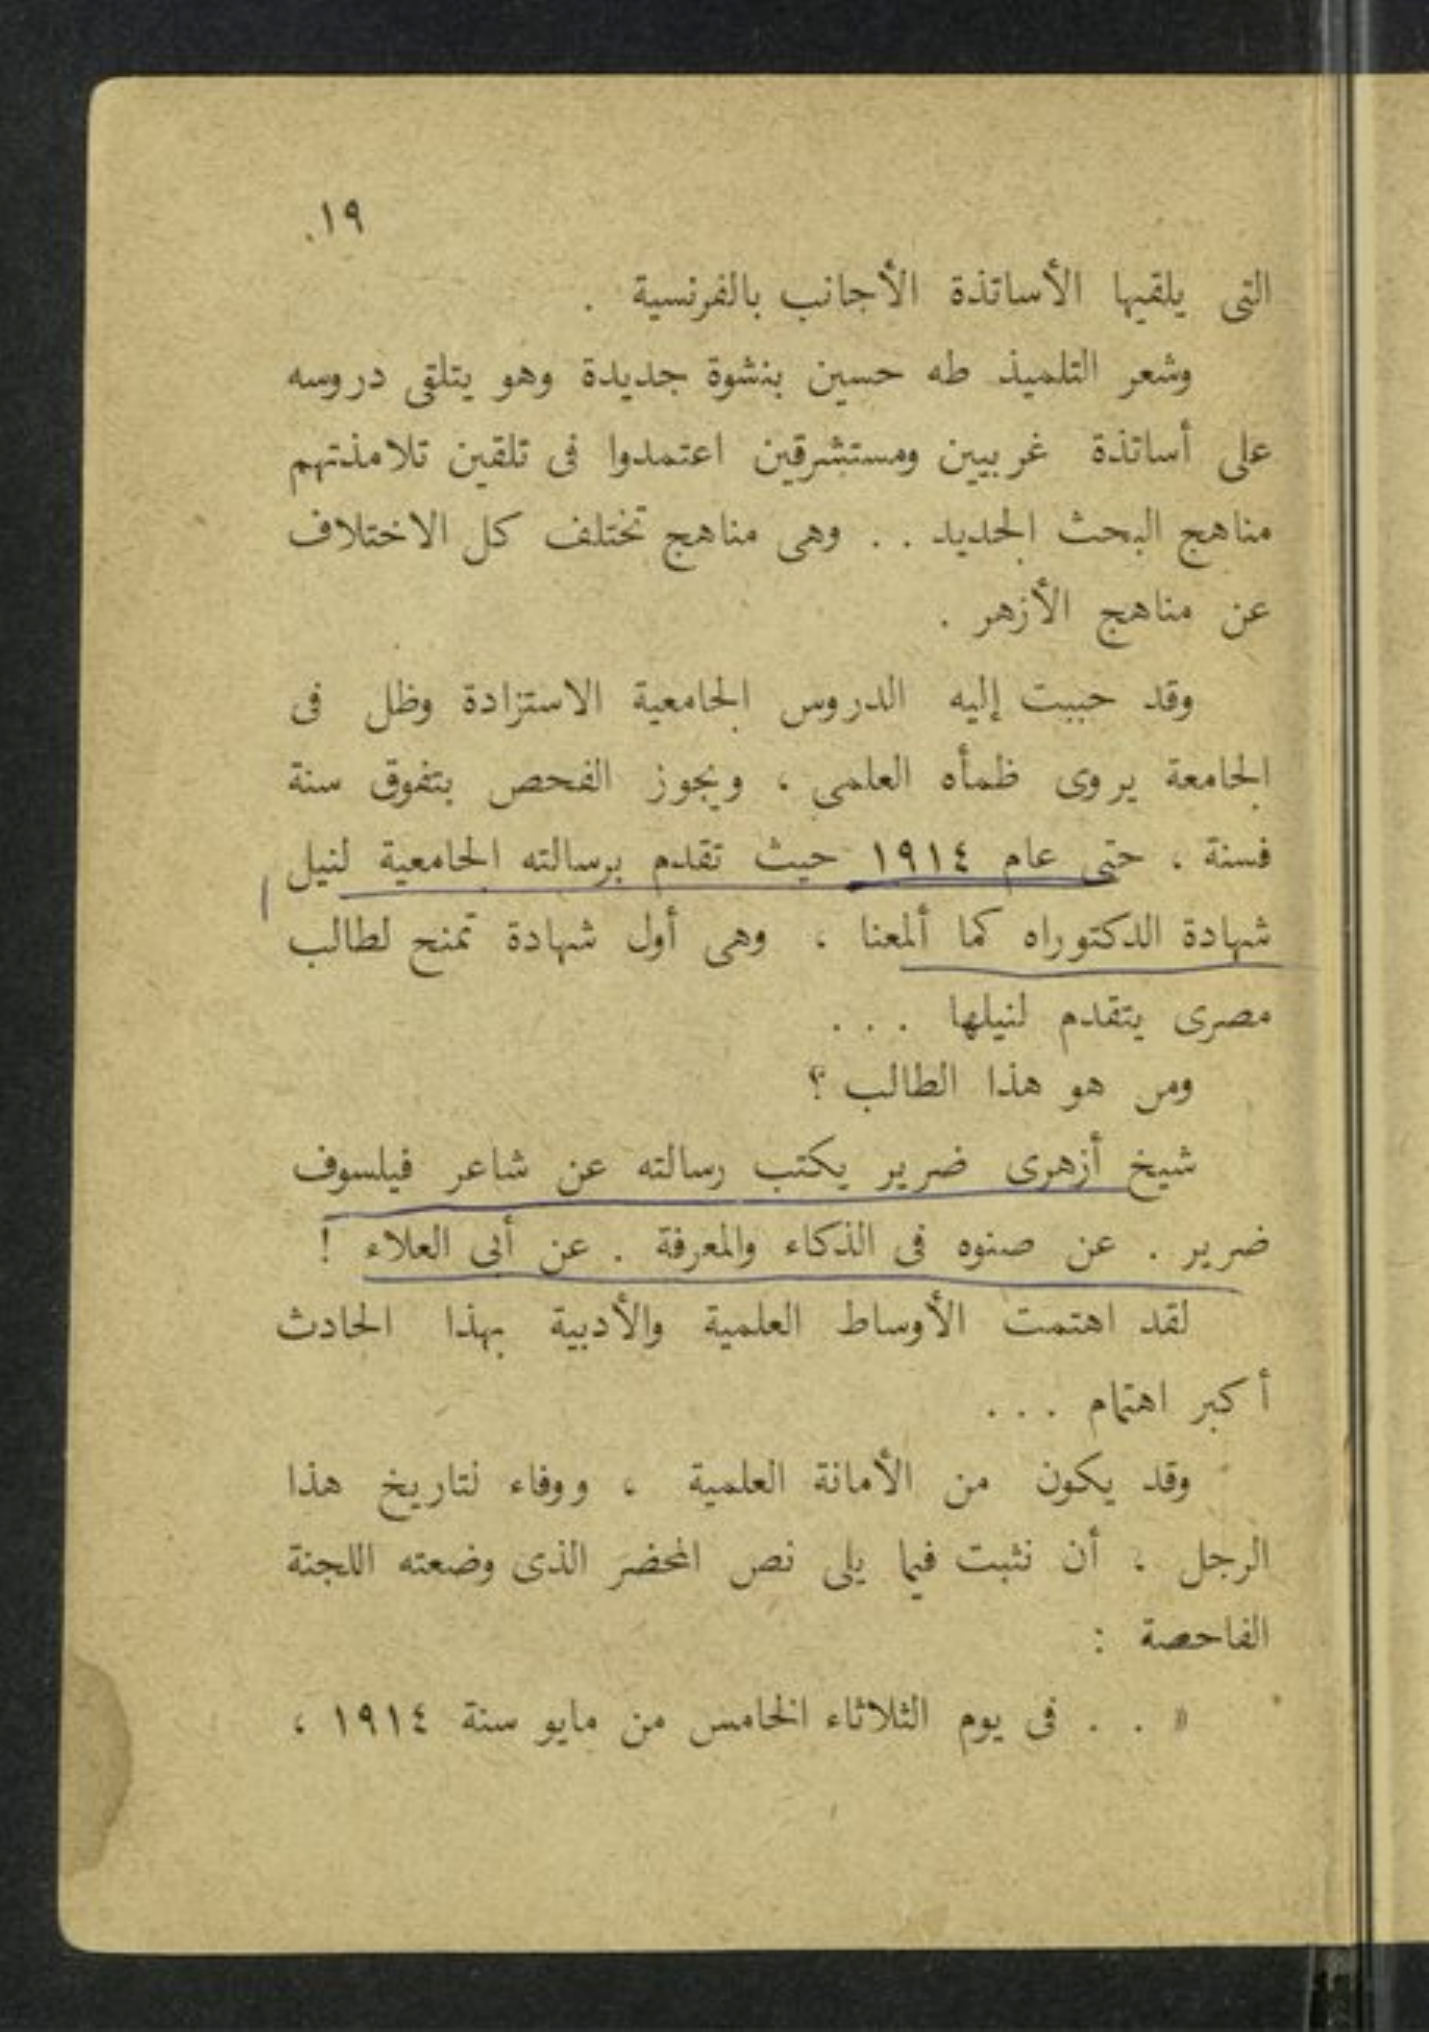 ١٩
التى يلقيها الأساتذة الأجانب بالفرنسية .
وشعر التلميذ طه حسين بنشوة جديدة وهو يتلقى دروسه
على أساتذة غربيين ومستشرقين اعتمدوا فى تلقين تلامذتهم
مناهج البحث الجديد . . وهى مناهج تختلف كل الاختلاف
عن مناهج الأزهر .
وقد حببت إليه الدروس الجامعية الاستزادة وظل فى
الجامعة يروى ظمأه العلمى ، ويجوز الفحص بتفوق سنة
فسنة ، حتى عام ١٩١٤ حيث تقدم برسالته الجامعية لنيل
شهادة الدكتوراه كما ألمعنا ، وهى أول شهادة تمنح لطالب
مصرى يتقدم لنيلها . . .
ومن هو هذا الطالب ؟
شيخ أزهرى ضرير يكتب رسالته عن شاعر فيلسوف
ضرير . عن صنوه فى الذكاء والمعرفة . عن أبى العلاء !
لقد اهتمت الأوساط العلمية والأدبية بهذا الحادث
أكبر اهتمام . . .
وقد يكون من الأمانة العلمية ، ووفاء لتاريخ هذا
الرجل ، أن نثبت فيما يلى نص المحضر الذى وضعته اللجنة
الفاحصة :
« . . فى يوم الثلاثاء الخامس من مايو سنة ١٩١٤ ،